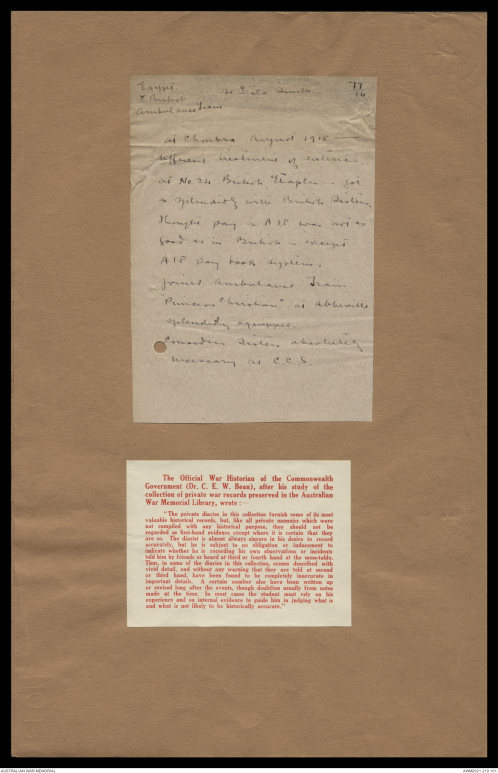 Egypt
& British
Ambulance Train
Sr Smith
77
16
at Choubra August 1915 —
different treatment of
at No 24 British Etaples — got
n splendidly with British Sisters.
thought pay in AIF was not as
good as in British — except
AIF pay book system.
Joined Ambulance Train
Princess Christian" at Abbeville
splendidly equipped
Considers Sisters absolutely
necessary at C.C.S.
The Official War Historian of the Commonwealth
Government (Dr. C. E. W. Bean), after his study of the
collection of private war records preserved in the Australian
War Memorial Library, wrote :—
"The private diaries in this collection furnish some of its most
valuable historical records, but, like all private memoirs which were
not compiled with any historical purpose, they should not be
regarded as first-hand evidence except where it is certain that they
are so. The diarist is almost always sincere in his desire to record
accurately, but he is subject to no obligation or inducement to
indicate whether he is recording his own observations or incidents
told him by friends or heard at third or fourth hand at the mess-table.
Thus, in some of the diaries in this collection, scenes described with
vivid detail, and without any warning that they are told at second
or third hand, have been found to be completely inaccurate in
important details. A certain number also have been written up
or revised long after the events, though doubtless usually from notes
made at the time. In most cases the student must rely on his
experience and on internal evidence to guide him in judging what is
and what is not likely to be historically accurate."
AUSTRALIAN WAR MEMORIAL